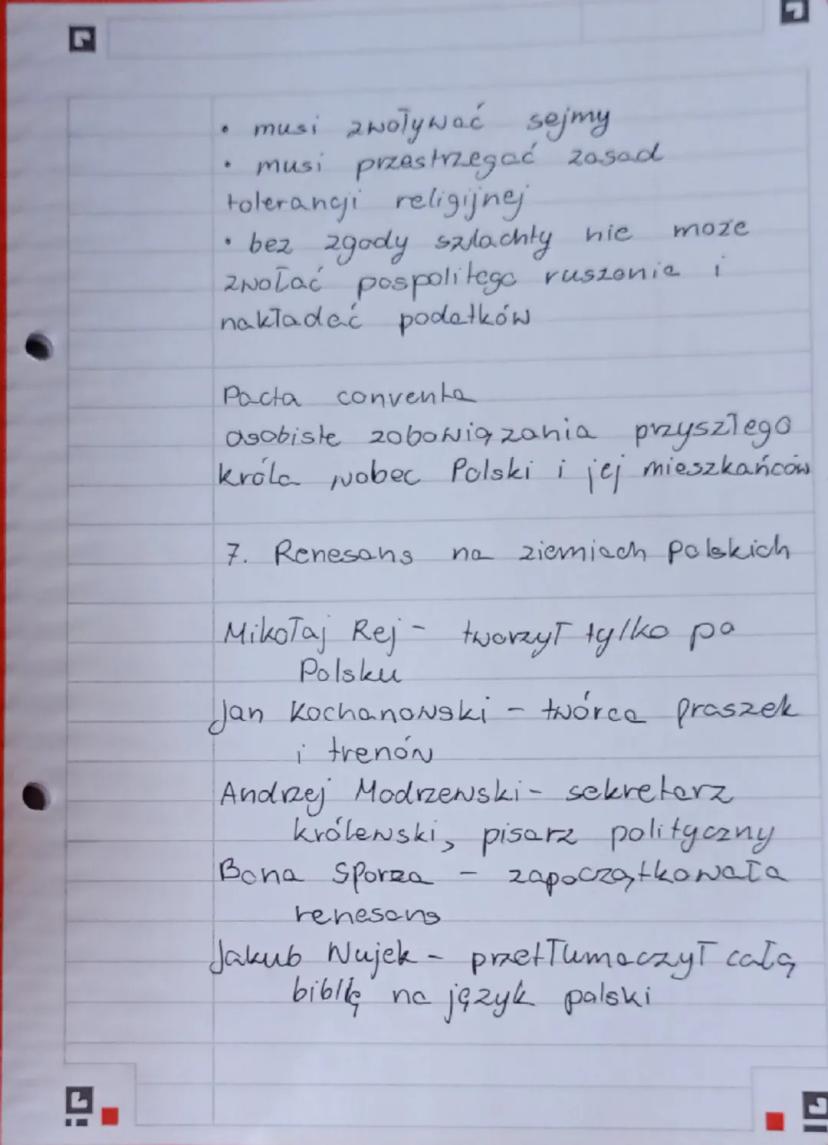 • musi zwoływać sejmy
• musi przestrzegać zasad
tolerancji religijnej
• bez zgody szlachty nie może
zwołać pospolitego ruszenia i
nakładać podatków
Pacta conventa
osobiste zobowiązania przyszłego
króla wobec Polski i jej mieszkańców
7. Renesans na ziemiach polskich
Mikołaj Rej - tworzył tylko po
Polsku
Jan Kochanowski - twórca fraszek
i trenów
Andrzej Modrzewski - sekretarz
królewski, pisarz polityczny
Bona Sporza - zapoczątkowała
renesans
Jakub Wujek - przetłumaczył całą
biblię na język polski